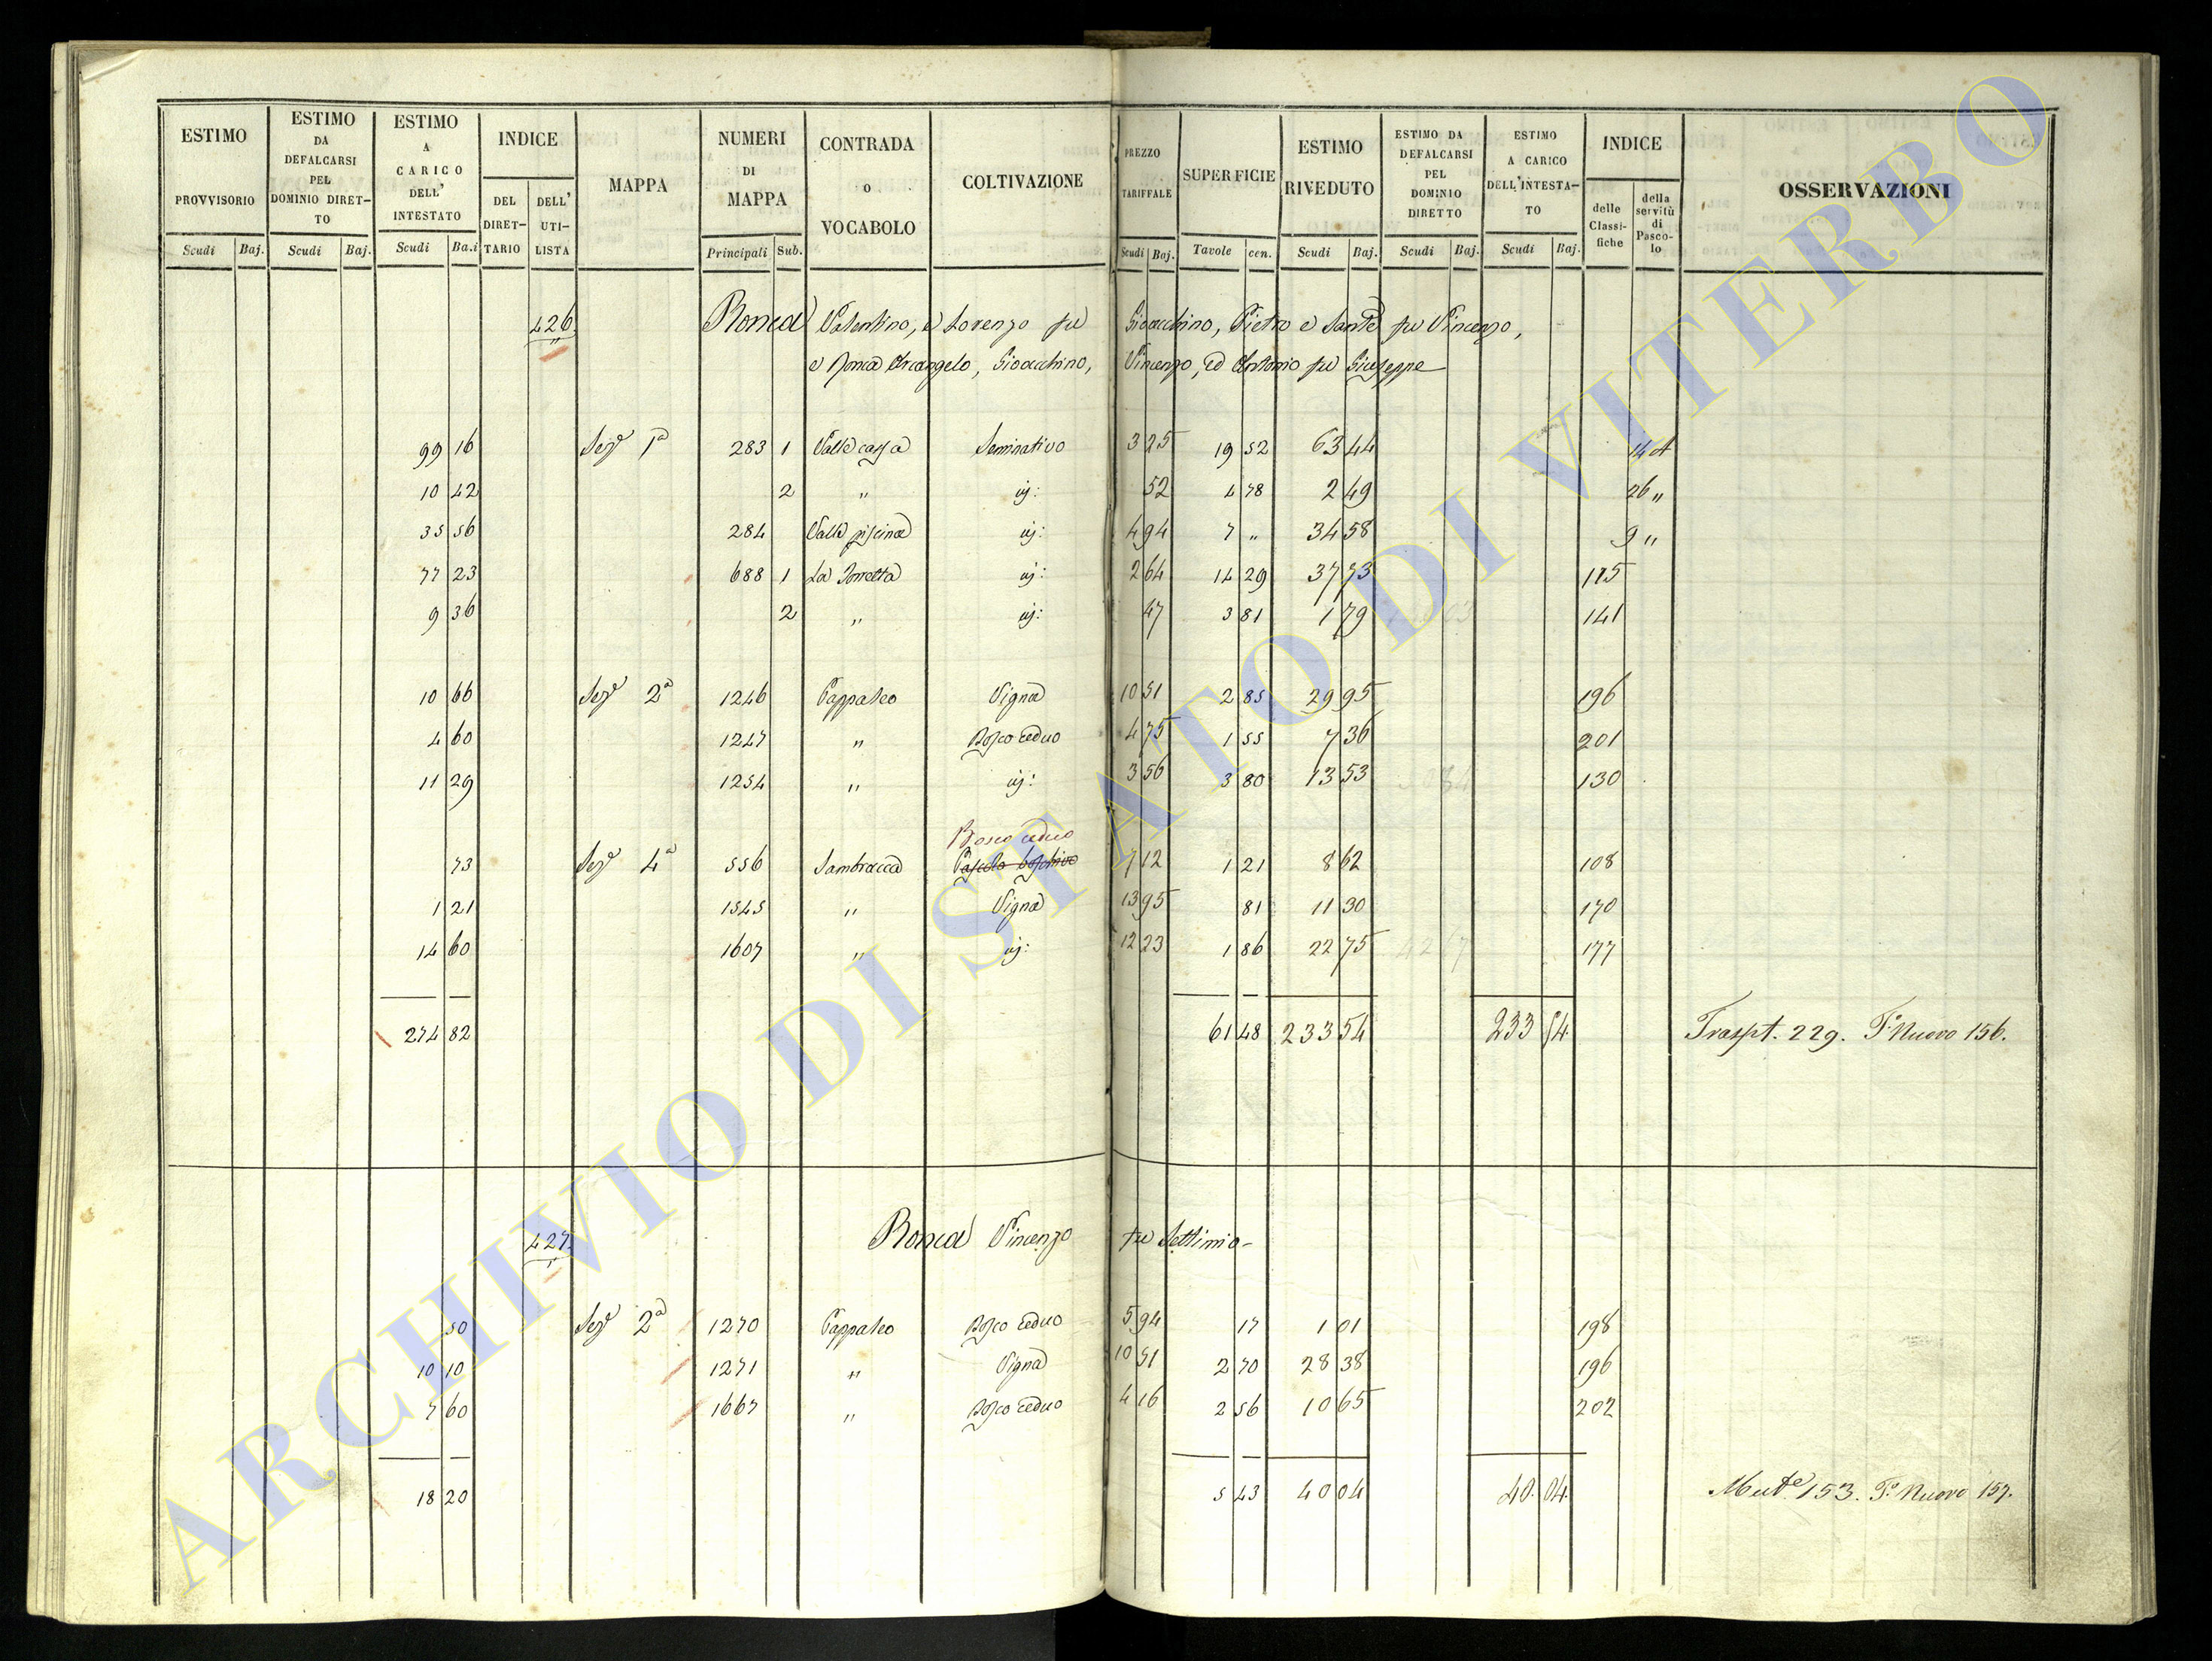 ESTIMO PROVVISORIO Scudi Baj.
ESTIMO DA DEFALCARSI PEL DOMINIO DIRET-TO Scudi Baj.
ESTIMO A CARICO DELL' INTESTATO Scudi Ba.i
INDICE DEL DIRET-TARIO DELL' UTI-LISTA
MAPPA
NUMERI DI MAPPA Principali Sub.
CONTRADA O VOCABOLO
COLTIVAZIONE
PREZZO TARIFFALE Scudi Baj.
SUPERFICIE Tavole cen.
ESTIMO RIVEDUTO Scudi Baj.
ESTIMO DA DEFALCARSI PEL DOMINIO DIRETTO Scudi Baj.
ESTIMO A CARICO DELL'INTESTA-TO Scudi Baj.
INDICE delle Classi-fiche della servitù di Pasco-lo
OSSERVAZIONI
426 Ronca Valentino, e Lorenzo fu Gioacchino, Pietro e Sante fu Vincenzo,
e Ronca Arcangelo, Gioacchino, Vincenzo, ed Antonio fu Giuseppe
99 16 Sez.e 1a 283 1 Seminativo 3 25 19 52 63 44 14 A
10 42 2 " 52 4 78 2 49 26 "
35 56 284 Valle piscina 4 94 7 " 34 58 9 "
77 23 688 1 La Torretta 2 64 14 29 37 73 115
9 36 2 " 47 3 81 1 79 141
10 66 Sez.e 2a 1246 Pappaleo Vigna 10 51 2 85 29 95 196
4 60 1247 " Bosco ceduo 4 75 1 55 7 36 201
11 29 1254 " 3 56 3 80 13 53 130
Bosco ceduo
73 Sez.e 4a 556 Sambracca Pascolo boschivo 7 12 1 21 8 62 108
1 21 1545 " Vigna 13 95 81 11 30 170
14 60 1607 " 12 23 1 86 22 75 177
274 82 61 48 233 54 233 54 Traspt. 229. F.o Nuovo 156.
427 Ronca Vincenzo fu Settimio
50 Sez.e 2a 1270 Pappaleo Bosco ceduo 5 94 17 1 01 198
10 10 1271 " Vigna 10 51 2 70 28 38 196
7 60 1667 " Bosco ceduo 4 16 2 56 10 65 202
18 20 5 43 40 04 40 04 153. F.o Nuovo 157.
ARCHIVIO DI STATO DI VITERBO